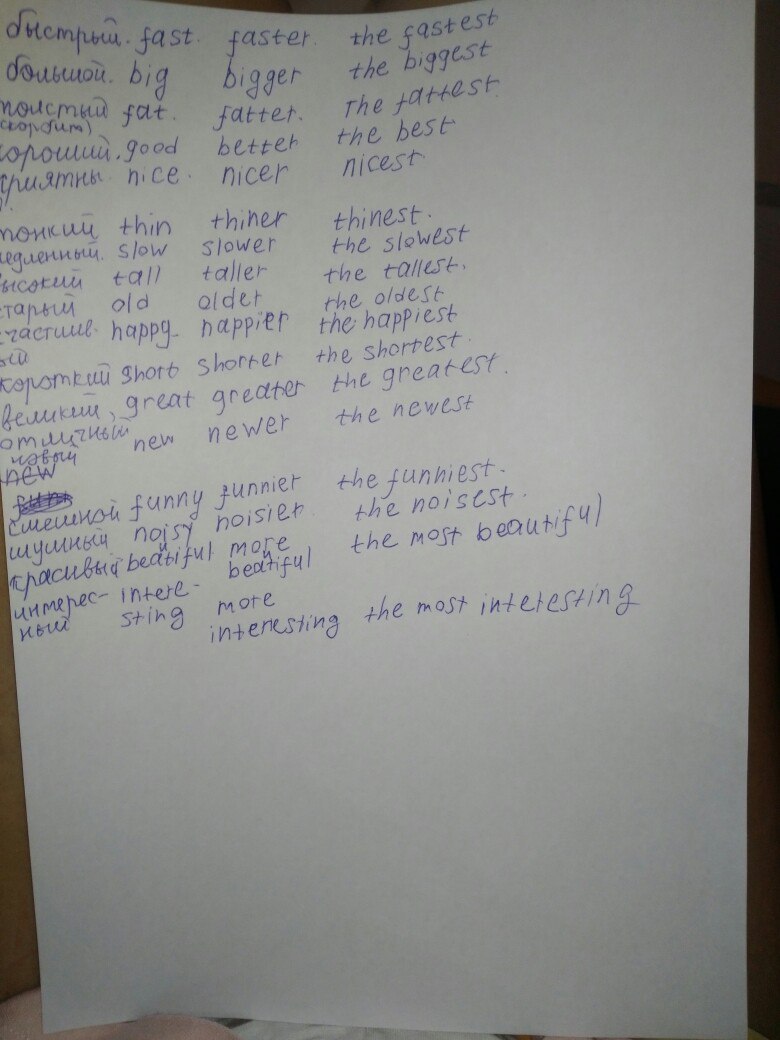 быстрый. fast. faster. the fastest
большой. big bigger the biggest
толстый fat. fatter. The fattest.
(скорбит)
хороший. good better the best
приятны nice. nicer nicest.
й.
тонкий thin thiner thinest.
медленный. slow slower the slowest
высокий tall taller the tallest.
старый old older the oldest
счастлив- happy happier the happiest
ый
короткий short shorter the shortest.
великий, great greater the greatest.
отличный
новый new newer the newest
new
смешной funny funnier the funniest.
шумный noisy noisier the noisest.
красивый beatiful more the most beautiful
beatiful
интерес- intere- more
ный sting interesting the most interesting